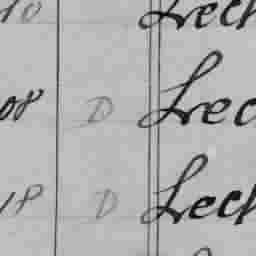 10 Lech
08 D Lech
18 D Lech